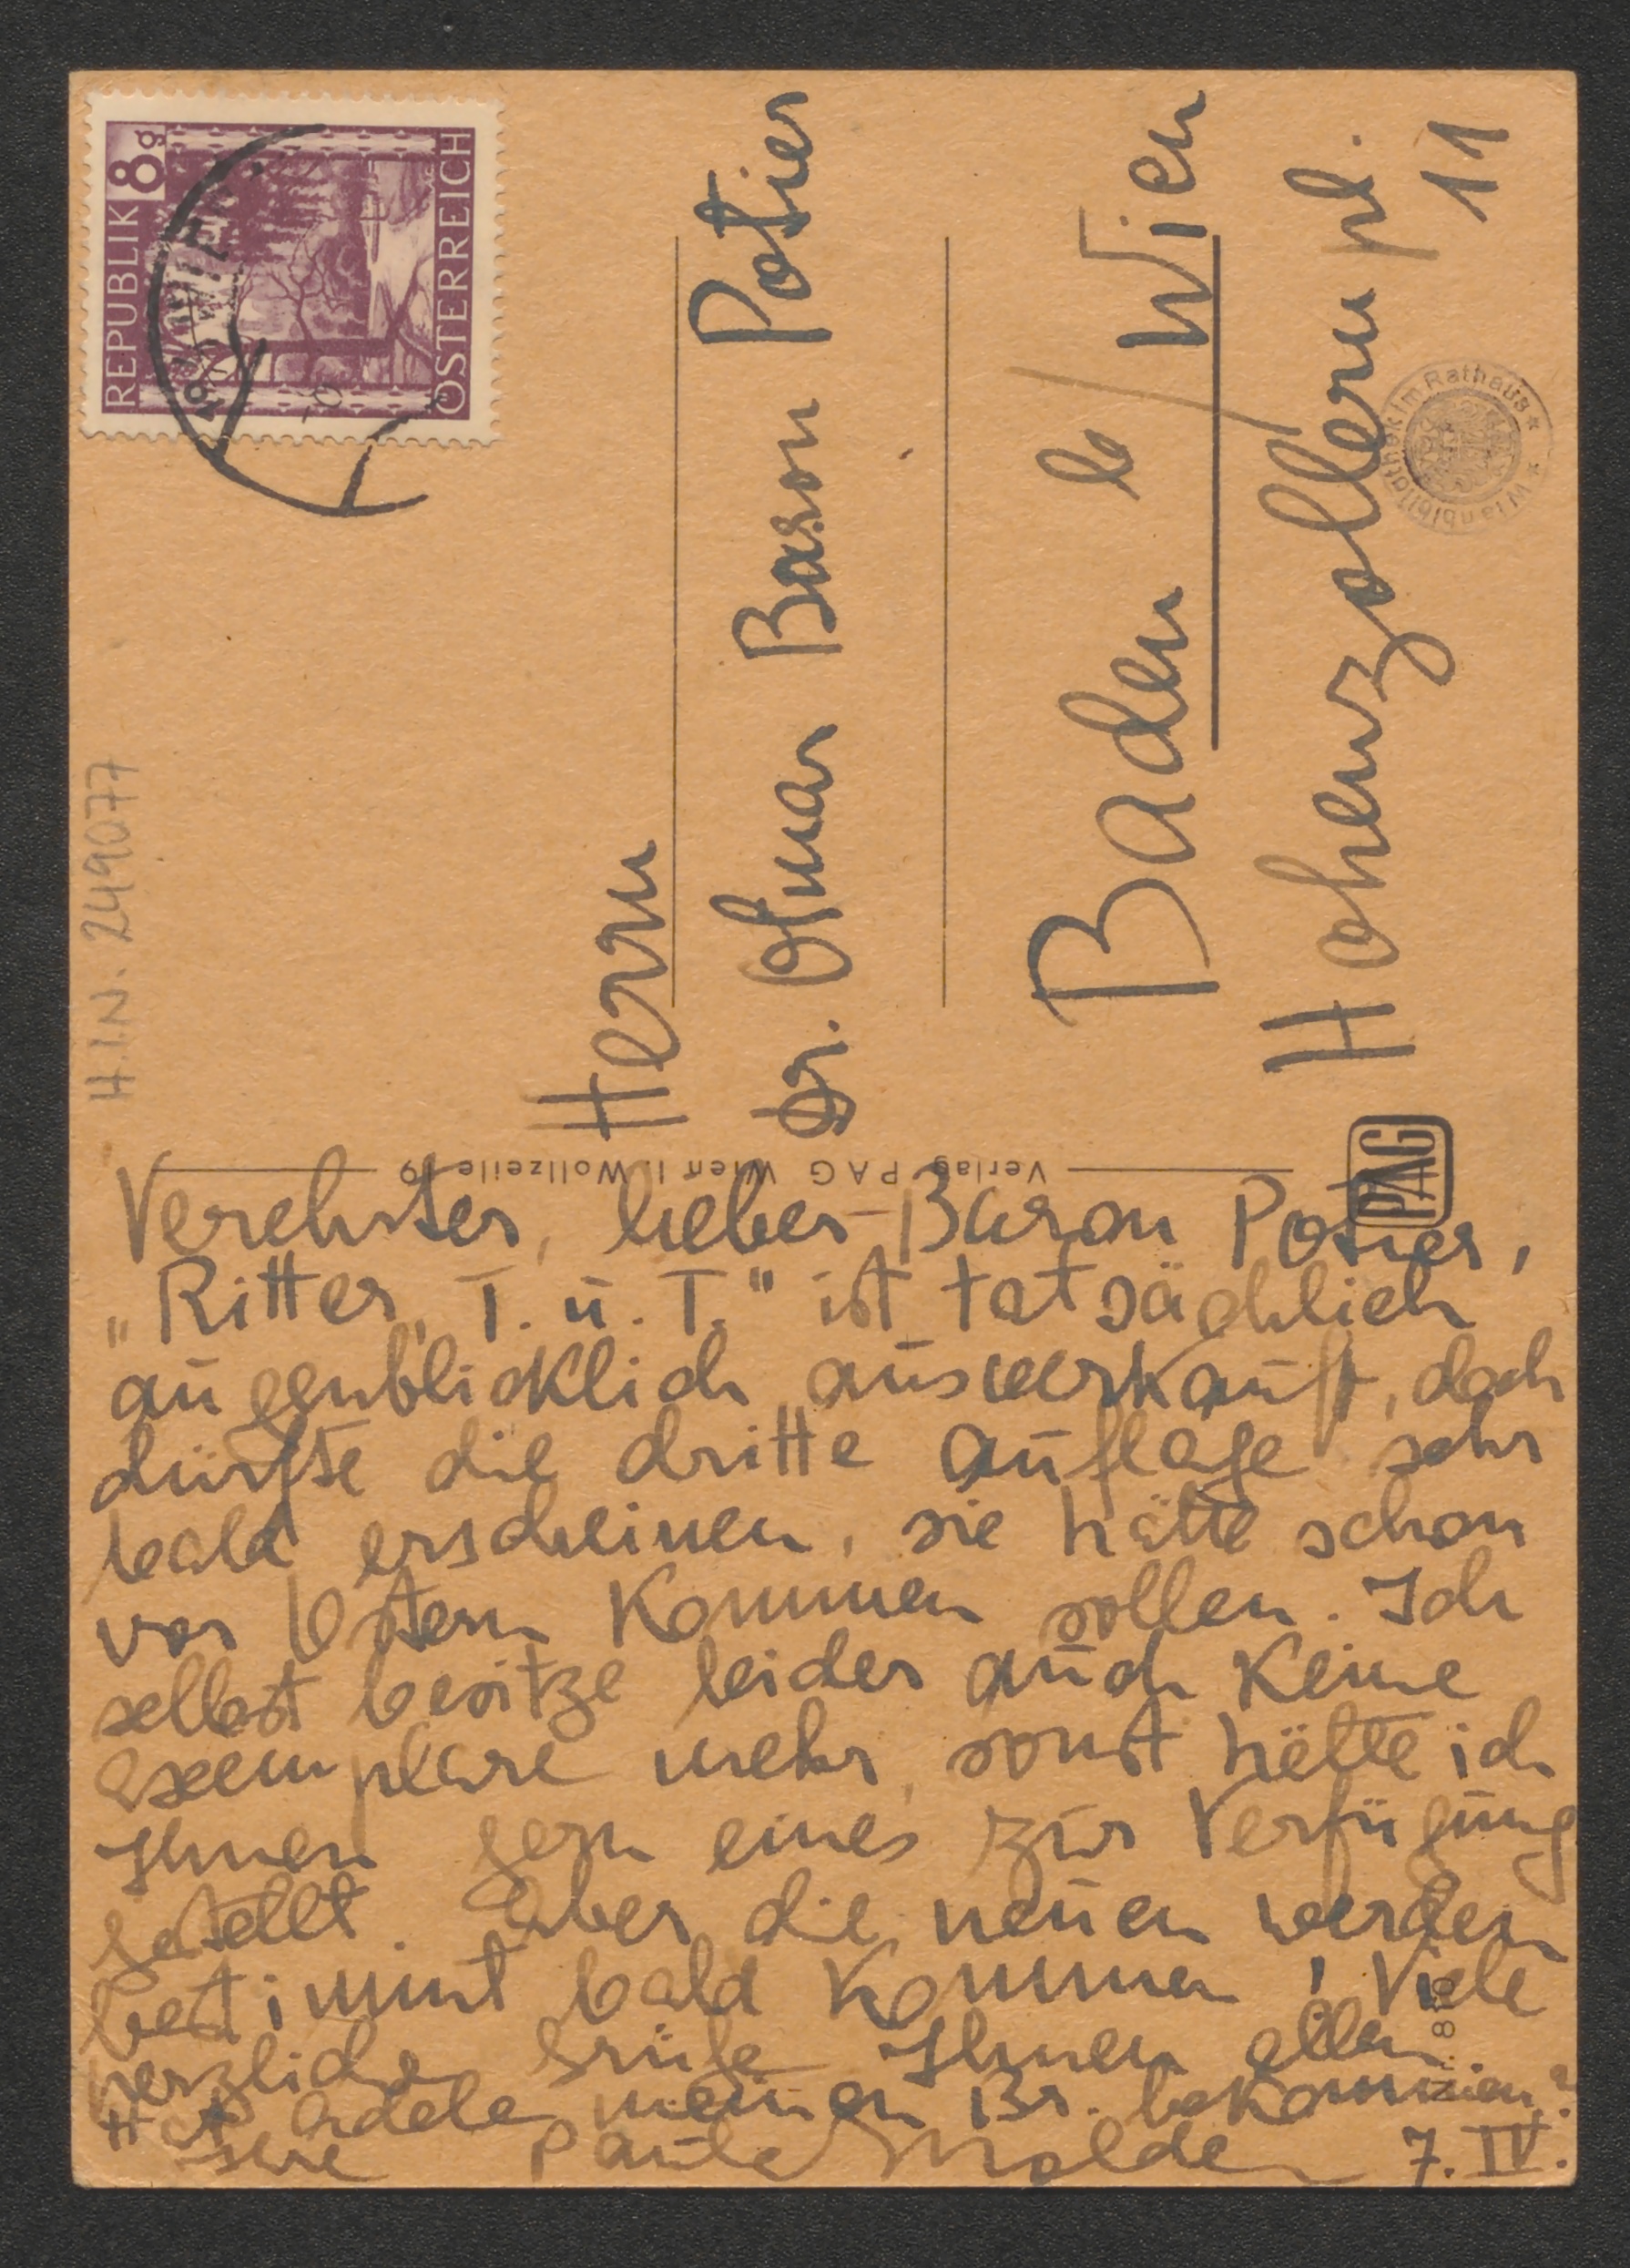 REPUBLIK 8g
ÖSTERREICH
WIEN
H.I.N. 249077
Herrn
Dr. Otmar Baron Potier
Baden b/Wien
Hohenzollernpl.
11
Wienbibliothek im Rathaus
Verlag PAG Wien I. Wollzeile 19
PAG
Verehrter, lieber Baron Potier,
„Ritter, T. u. T." ist tatsächlich
augenblicklich ausverkauft, doch
dürfte die dritte Auflage sehr
bald erscheinen, sie hätte schon
vor Ostern kommen sollen. Ich
selbst besitze leider auch keine
Exemplare mehr, sonst hätte ich
Ihnen gern eines zur Verfügung
gestellt. Aber die neuen werden
bestimmt bald kommen! Viele
herzliche Grüße Ihnen allen.
Hat Adele meinen Br. bekommen?
Ihre Paula Molden 7. IV.